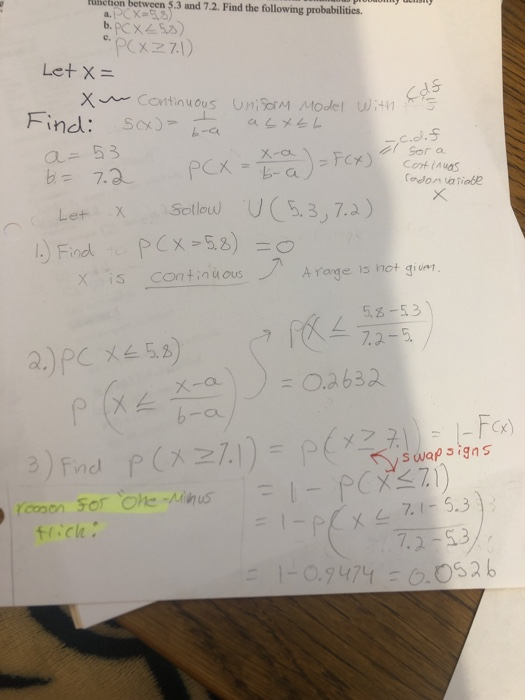 function between 5.3 and 7.2. Find the following probabilities.
a. P(X=5.8)
b. P(X≤5.8)
c. P(X≥7.1)
Let X =
X ~ Continuous Uniform Model with c.d.f
Find: f(x) = 1/(b-a) a ≤ x ≤ b
a = 53
b = 7.2
P(X = (x-a)/(b-a)) = F(x)
c.d.f
for a
Continuas
radom variable
X
Let X follow U(5.3, 7.2)
1.) Find P(X=5.8) = 0
X is continuous
A range is not given.
2.) P(X≤5.8)
P(X ≤ (x-a)/(b-a))
P(X ≤ (5.8-5.3)/(7.2-5.
= 0.2632
3) Find P(X≥7.1) = P(X≥7.1) = 1-F(x)
swap signs
= 1-P(X≤7.1)
reason for "One-Minus
trick:
= 1-P(X ≤ (7.1-5.3)/(7.2-5.3))
= 1-0.9474 = 0.0526